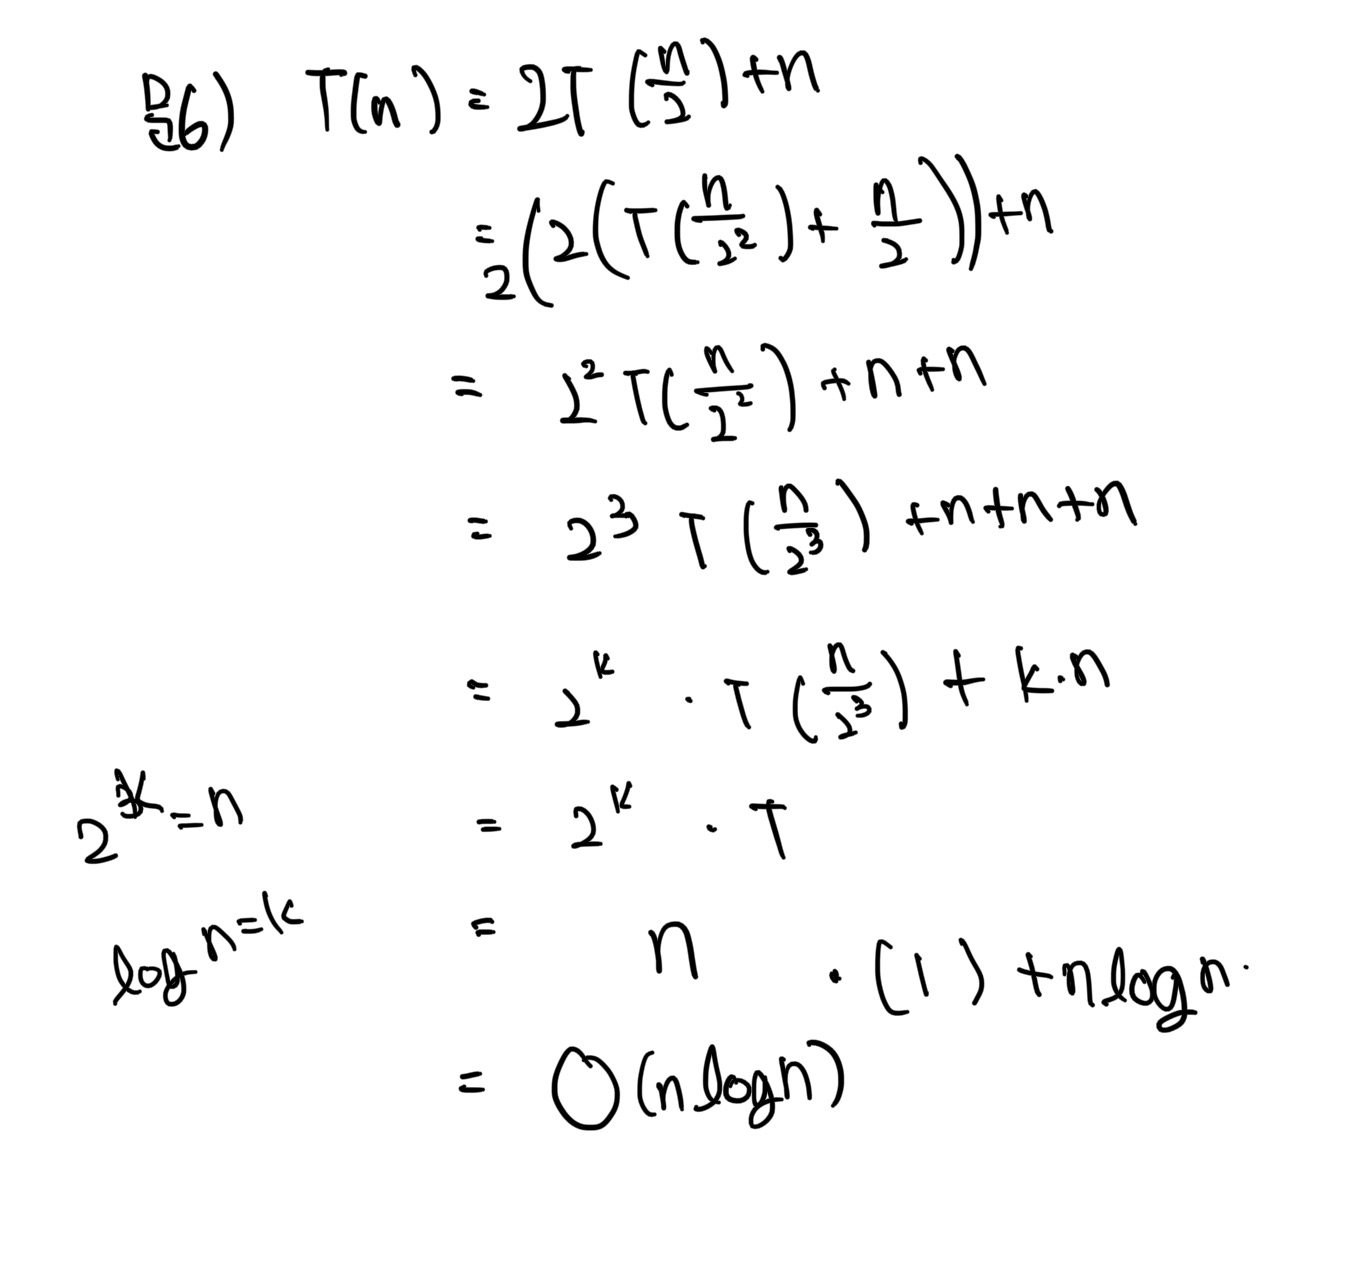 문6) T(n) = 2T(n/2)+n
= 2(2(T(n/2²)+n/2))+n
= 2²T(n/2²)+n+n
= 2³ T(n/2³)+n+n+n
= 2ᵏ · T(n/2³) + k·n
2ᵏ=n
= 2ᵏ · T
log n=k
= n · (1) +nlogn.
= O(nlogn)